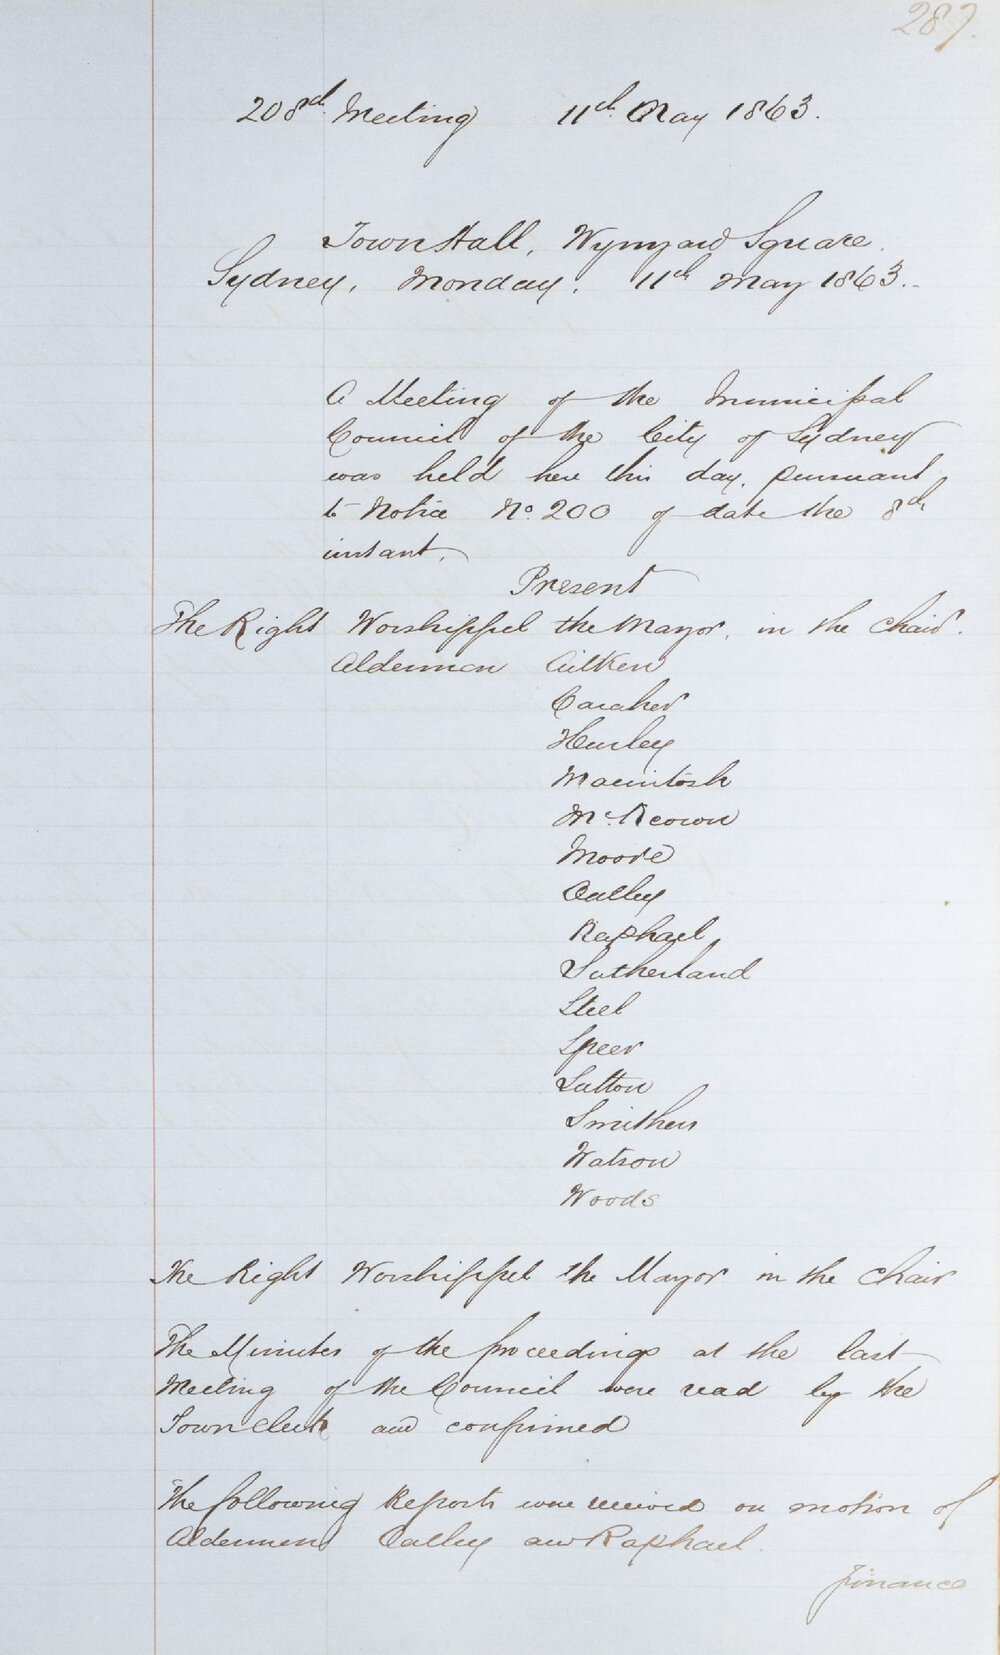 287.
208th Meeting 11th May 1863.
Town Hall, Wynyard Square.
Sydney, Monday, 11th May 1863.
A Meeting of the Municipal
Council of the City of Sydney
was held here this day, pursuant
to Notice No. 200 of date the 8th
instant.
Present
The Right Worshippel the Mayor, in the Chair.
Aldermen Aitken
Caraher
Hurley
Macintosh
McKeown
Moore
Oatley
Raphael
Sutherland
Steel
Speer
Sutton
Smithers
Watson
Woods
The Right Worshippel the Mayor in the Chair
The Minutes of the proceedings at the last
Meeting of the Council were read by the
Town Clerk and confirmed
The following Reports were received on motion of
Aldermen Oatley and Raphael.
Finance